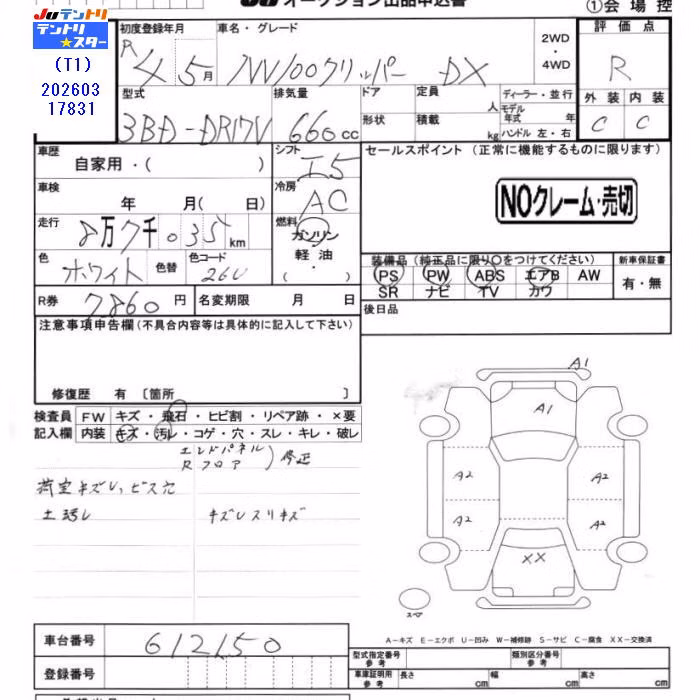 JU オークション出品申込書
①会場控
JUテントリ
テントリ★スター
(T1)
202603
17831
初度登録年月
R 4 5月
車名・グレード
NV100クリッパー DX
2WD
・
4WD
評価点
R
外装 内装
C C
型式
3BD-DR17V
排気量
660cc
ドア
形状
定員 人
積載 kg
ディーラー・並行
モデル年式 年
ハンドル 左・右
車歴
自家用・( )
シフト
I5
車検
年 月( 日)
冷房
AC
走行
8万7千035km
燃料
ガソリン
軽油
( ・ )
色
ホワイト
色替
色コード
26U
R券
7,860円
名変期限 月 日
セールスポイント (正常に機能するものに限ります)
NOクレーム・売切
装備品(純正品に限り○をつけてください)
PS PW ABS エアB AW
SR ナビ TV カワ
新車保証書
有・無
後日品
注意事項申告欄(不具合内容等は具体的に記入して下さい)
修復歴 有〔箇所 〕
検査員 FW キズ・飛石・ヒビ割・リペア跡・×要
記入欄 内装 キズ・汚レ・コゲ・穴・スレ・キレ・破レ
エンドパネル
Rフロア 修正
荷室キズレ、ビス穴
キズレスリキズ
A1
A1
A2 A2
A2 A2
XX
スペア
A-キズ E-エクボ U-凹み W-補修跡 S-サビ C-腐食 XX-交換済
車台番号
612150
登録番号
型式指定番号
参考
類別区分番号
参考
車庫証明用
参考
長さ cm 幅 cm 高さ cm